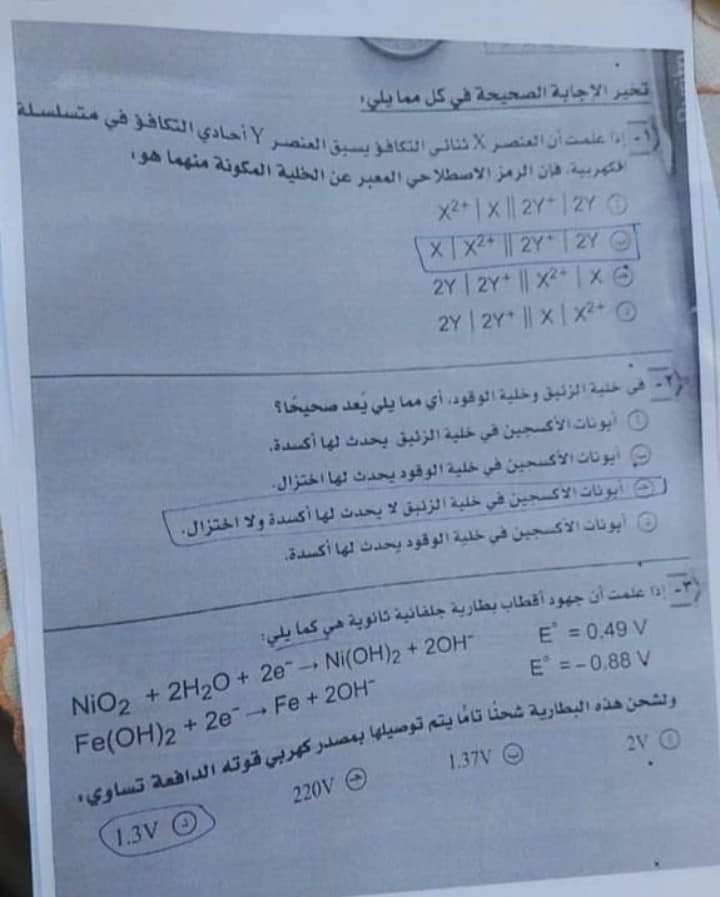 تخير الإجابة الصحيحة في كل مما يلي،
١- إذا علمت أن العنصر X ثنائي التكافؤ يسبق العنصر Y أحادي التكافؤ في متسلسلة
الكهربية، فإن الرمز الاصطلاحي المعبر عن الخلية المكونة منهما هو،
أ X²⁺ | X || 2Y⁺ | 2Y
ب X | X²⁺ || 2Y⁺ | 2Y
ج 2Y | 2Y⁺ || X²⁺ | X
د 2Y | 2Y⁺ || X | X²⁺
٢- في خلية الزئبق وخلية الوقود، أي مما يلي يُعد صحيحًا؟
أ أيونات الأكسجين في خلية الزئبق يحدث لها أكسدة.
ب أيونات الأكسجين في خلية الوقود يحدث لها اختزال.
ج أيونات الأكسجين في خلية الزئبق لا يحدث لها أكسدة ولا اختزال.
د أيونات الأكسجين في خلية الوقود يحدث لها أكسدة.
٣- إذا علمت أن جهود أقطاب بطارية جلفانية ثانوية هي كما يلي:
NiO₂ + 2H₂O + 2e⁻ → Ni(OH)₂ + 2OH⁻ E° = 0.49 V
Fe(OH)₂ + 2e⁻ → Fe + 2OH⁻ E° = -0.88 V
ولشحن هذه البطارية شحنًا تامًا يتم توصيلها بمصدر كهربي قوته الدافعة تساوي،
أ 2V ب 1.37V ج 220V د 1.3V